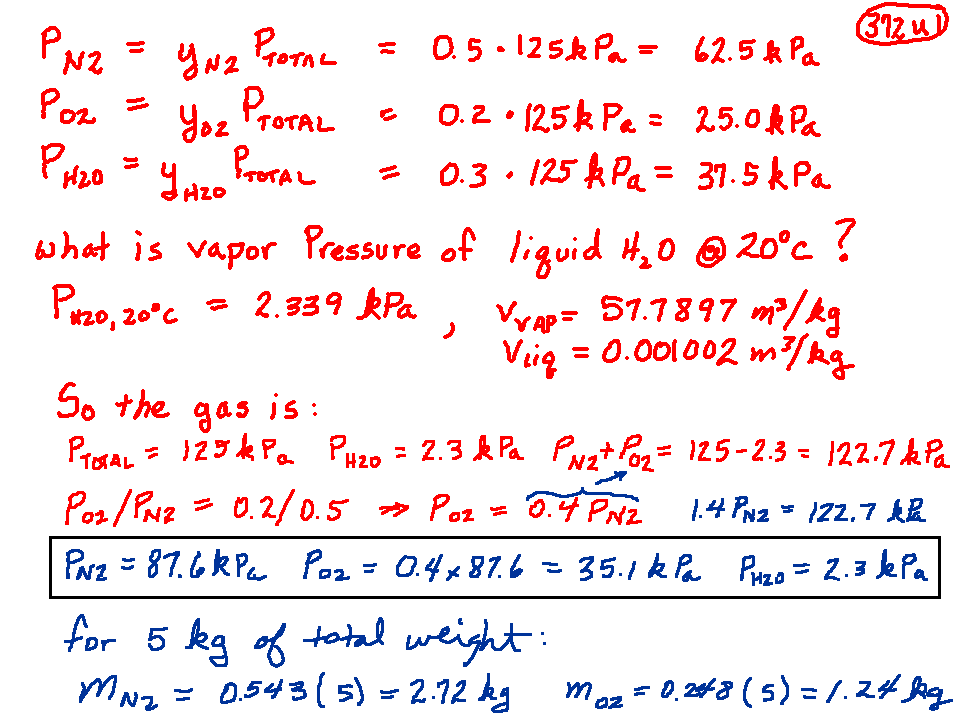 372u1
P_N2 = y_N2 P_TOTAL = 0.5 · 125kPa = 62.5 kPa
P_O2 = y_O2 P_TOTAL = 0.2 · 125kPa = 25.0kPa
P_H2O = y_H2O P_TOTAL = 0.3 · 125kPa = 37.5kPa
what is vapor Pressure of liquid H₂O @ 20°C ?
P_H2O, 20°C = 2.339 kPa , V_VAP = 57.7897 m³/kg
V_liq = 0.001002 m³/kg
So the gas is :
P_TOTAL = 125kPa P_H2O = 2.3kPa P_N2 + P_O2 = 125-2.3 = 122.7kPa
P_O2/P_N2 = 0.2/0.5 ⇒ P_O2 = 0.4 P_N2 1.4 P_N2 = 122.7 kPa
P_N2 = 87.6kPa P_O2 = 0.4 x 87.6 = 35.1 kPa P_H2O = 2.3kPa
for 5 kg of total weight :
m_N2 = 0.543 (5) = 2.72 kg m_O2 = 0.248 (5) = 1.24 kg